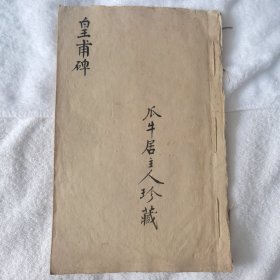 皇甫碑
瓜牛居主人珍藏